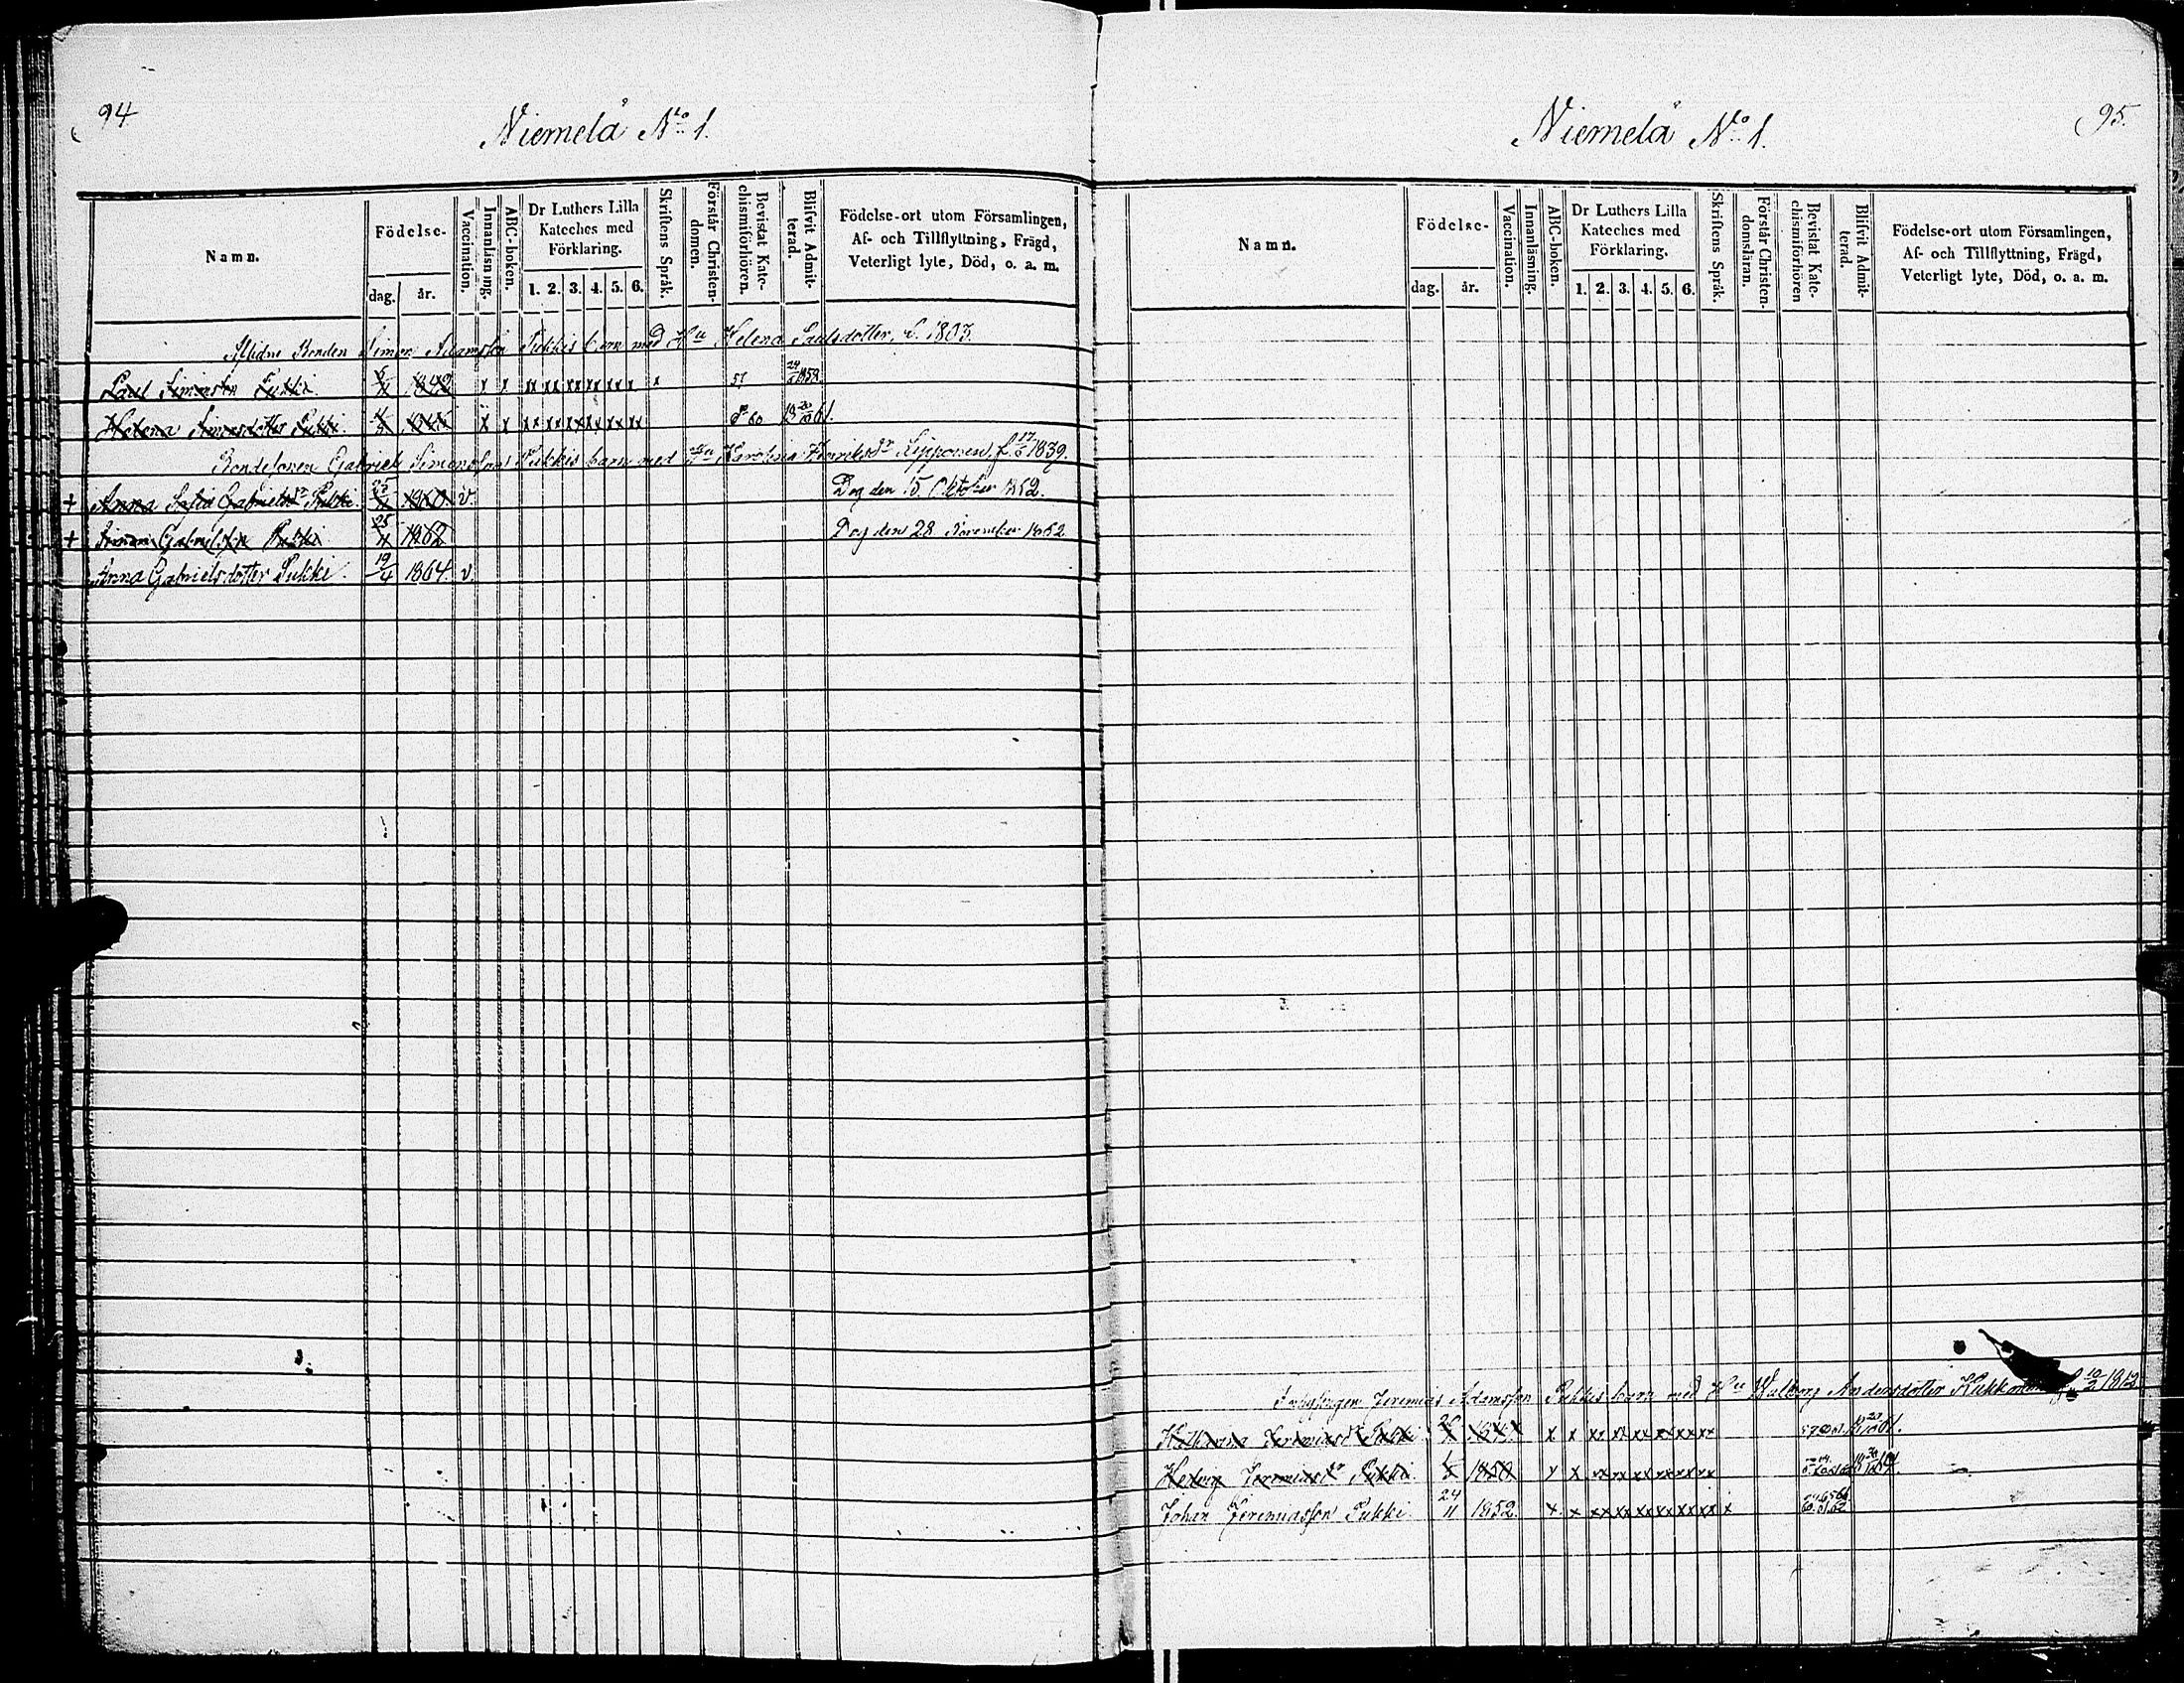 94
Niemelä No 1.
Namn.
Födelse-
dag.
år.
Vaccination.
Innanläsning.
ABC-boken.
Dr Luthers Lilla
Kateches med
Förklaring.
1. 2. 3. 4. 5. 6.
Skriftens Språk.
Förstår Christen-
domen.
Bevistat Kate-
chismiförhören.
Blifvit Admit-
terad.
Födelse-ort utom Församlingen,
Af- och Tillflyttning, Frägd,
Veterligt lyte, Död, o. a. m.
Aflidne Bonden Simon Adamsson Pukkis barn med Hu Helena Paulsdotter, f. 1803.
Paul Simonsson Pukki 1842 x x xx xx xx xx xx x x 57
Helena Simonsdotter Pukki. x x xx xx xx xx xx xx 60
Bondesonen Gabriel Simonsson Pukkis barn med Hu Karolina Henriksdr f. 17/5 1839.
+ Anna Sofia Gabrielsdr Pukki. 1860. v. Dog den 15. Oktober 1862.
+ Simon Gabrielsson Pukki 25/11 1862 Dog den 28 November 1862
Anna Gabrielsdotter Pukki. 19/4 1864. v.
95.
Niemelä No 1.
Namn.
Födelse-
dag.
år.
Vaccination.
Innanläsning.
ABC-boken.
Dr Luthers Lilla
Kateches med
Förklaring.
1. 2. 3. 4. 5. 6.
Skriftens Språk.
Förstår Christen-
domsläran.
Bevistat Kate-
chismiförhören
Blifvit Admit-
terad.
Födelse-ort utom Församlingen,
Af- och Tillflyttning, Frägd,
Veterligt lyte, Död, o. a. m.
Jeremias Adamsson Pukkis barn med Hu Walborg Andersdotter f. 10/2 1812
Katharina Jeremiasdr Pukki x x xx xx xx xx xx xx
Hedvig Jeremiasdr Pukki 1850 x x xx xx xx xx xx xx
Johan Jeremiasson Pukki 24/11 1852. x x xx xx xx xx xx xx x